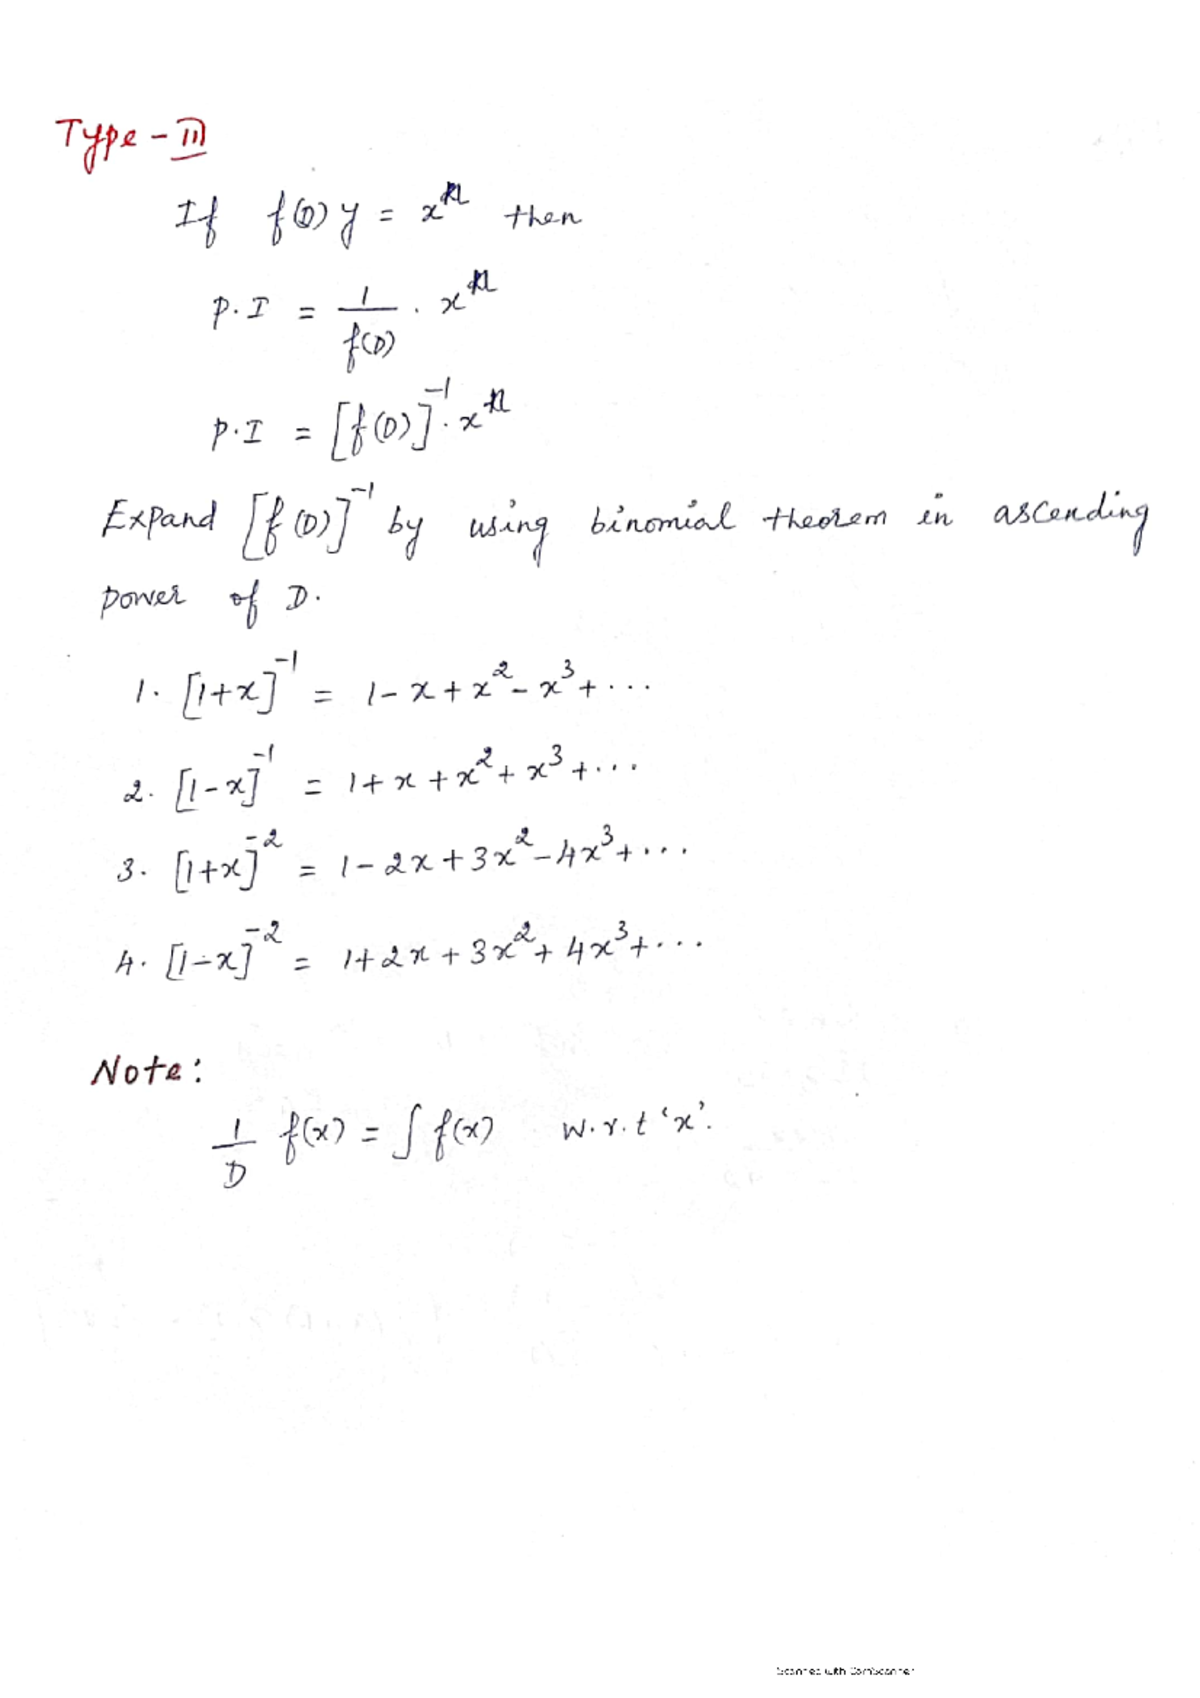 Type - III
If f(D) y = xⁿ then
P.I = 1/f(D) . xⁿ
P.I = [f(D)]⁻¹. xⁿ
Expand [f(D)]⁻¹ by using binomial theorem in ascending
power of D.
1. [1+x]⁻¹ = 1 - x + x² - x³ + ...
2. [1-x]⁻¹ = 1 + x + x² + x³ + ...
3. [1+x]⁻² = 1 - 2x + 3x² - 4x³ + ...
4. [1-x]⁻² = 1 + 2x + 3x² + 4x³ + ...
Note:
1/D f(x) = ∫ f(x) w.r.t 'x'.
Scanned with CamScanner